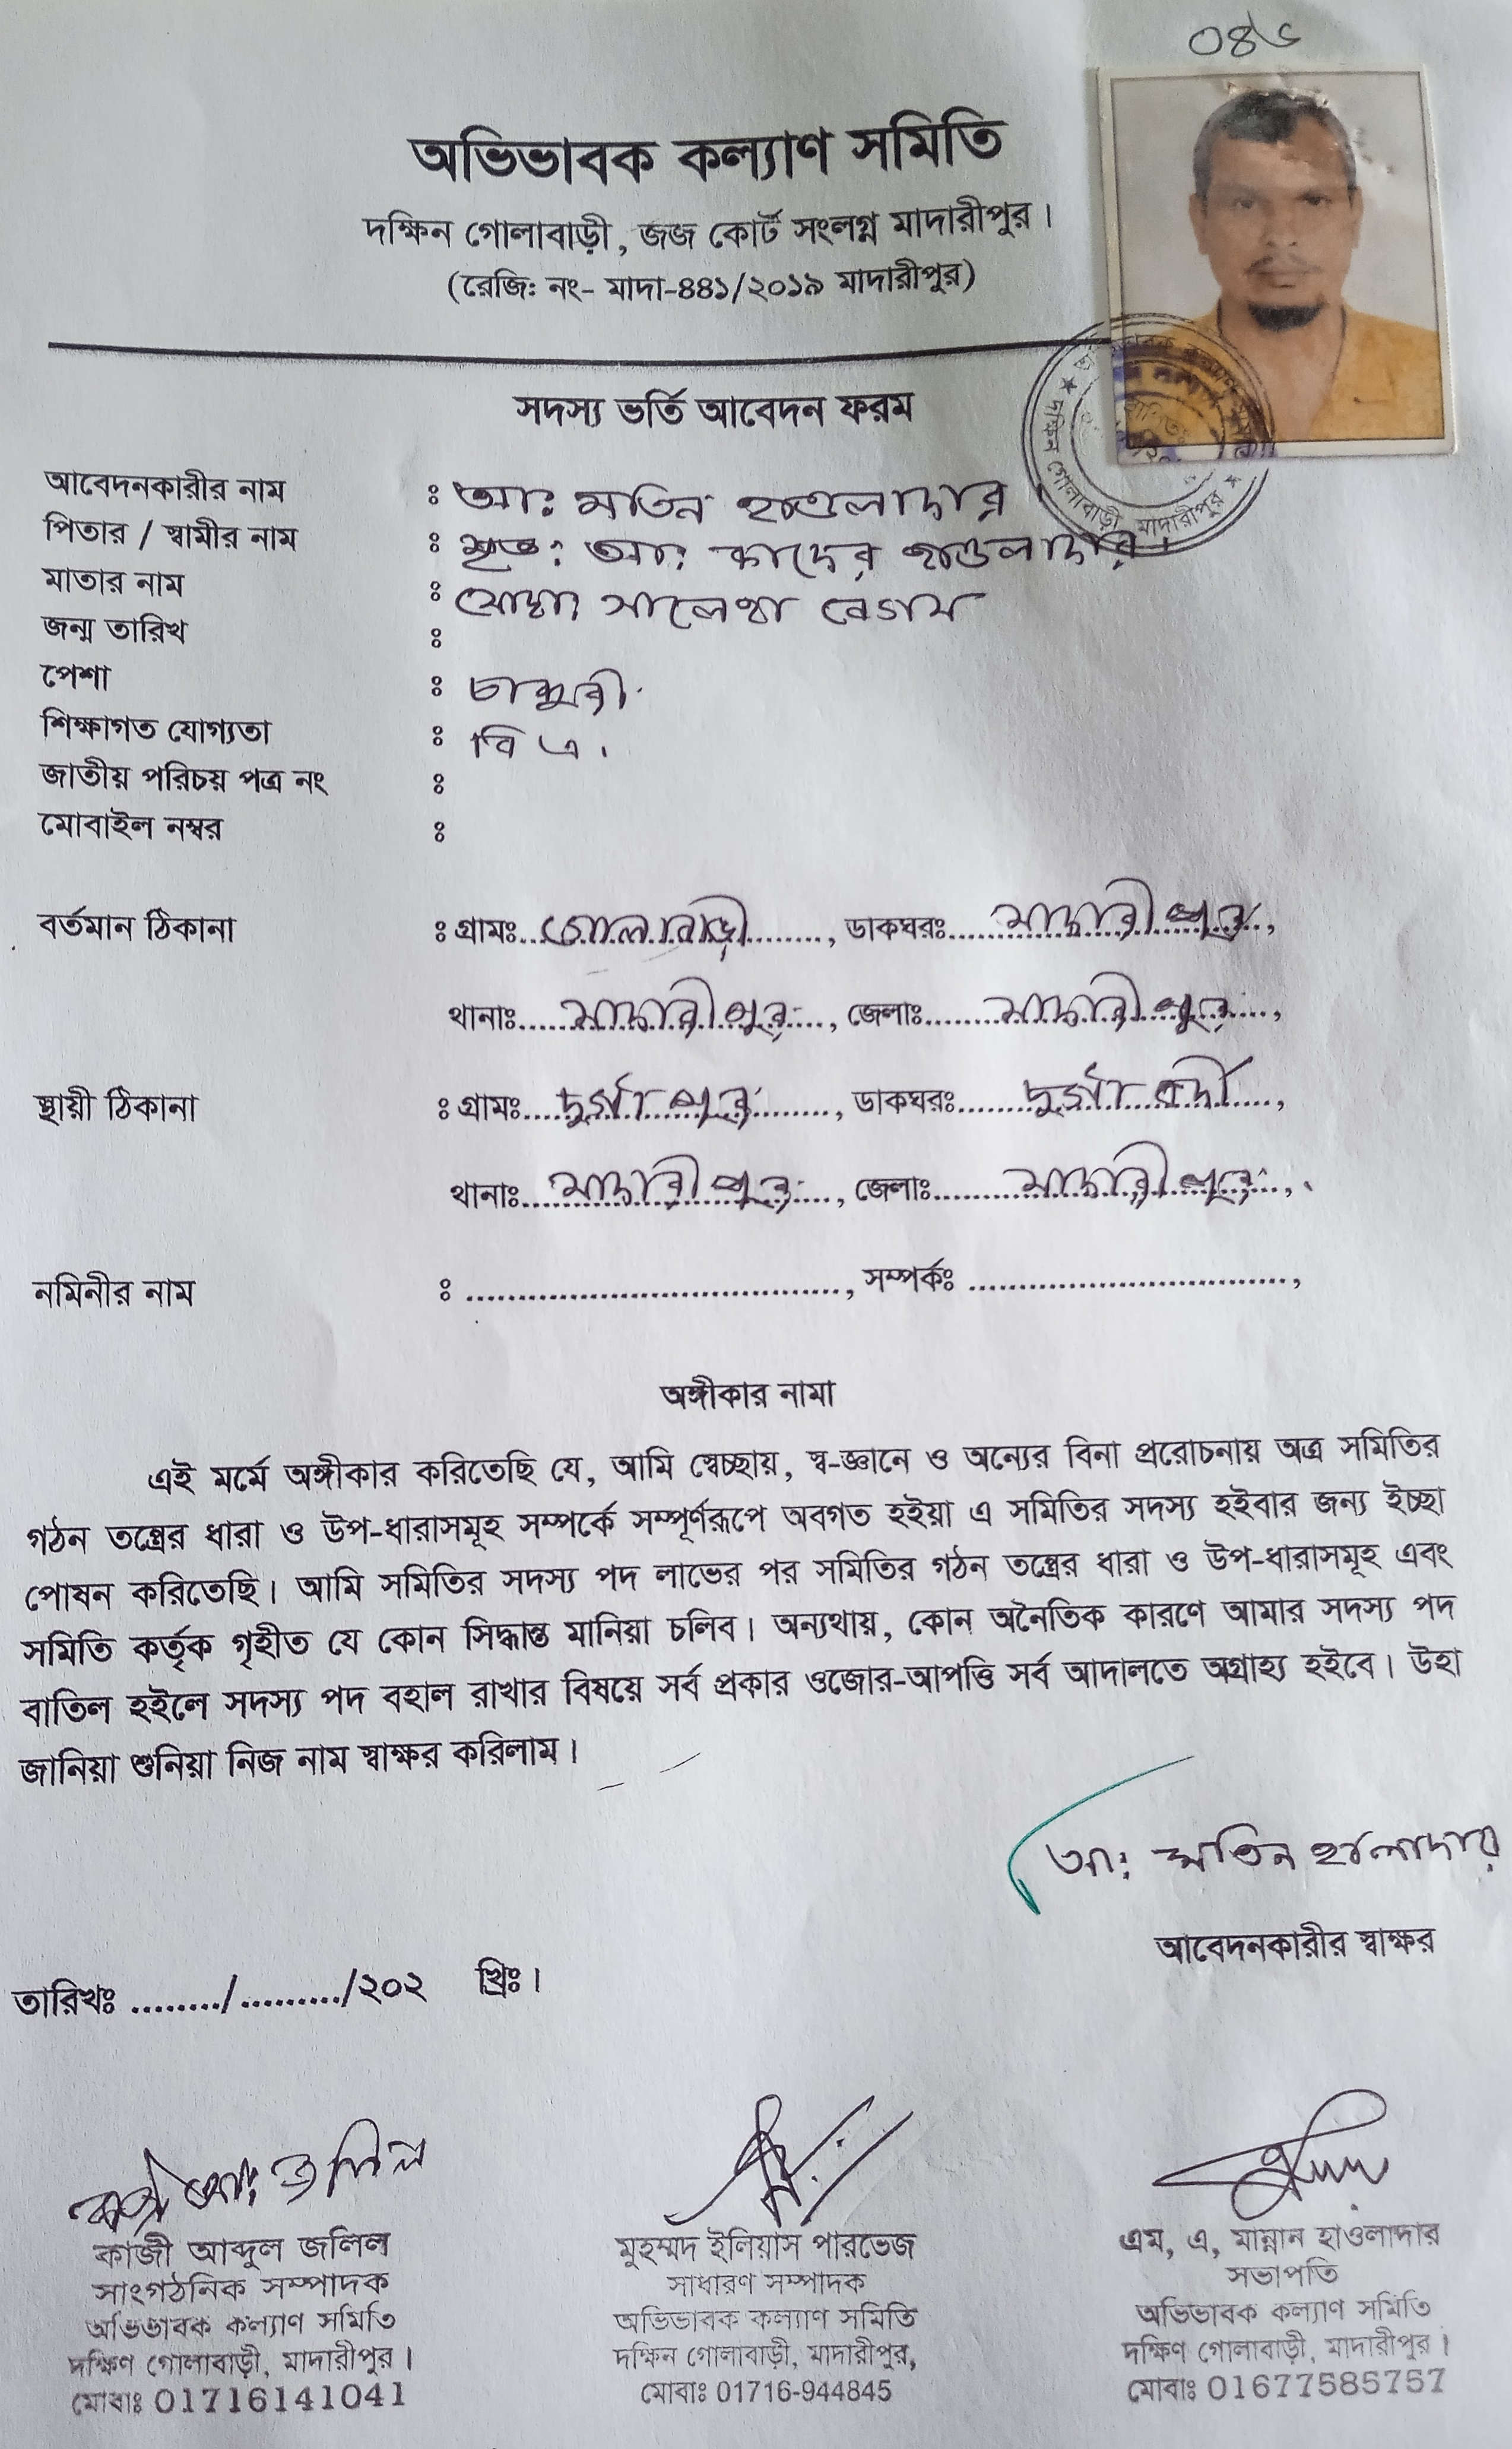 ০৪৬
অভিভাবক কল্যাণ সমিতি
দক্ষিন গোলাবাড়ী, জজ কোর্ট সংলগ্ন মাদারীপুর।
(রেজি: নং- মাদা-৪৪১/২০১৯ মাদারীপুর)
সদস্য ভর্তি আবেদন ফরম
আবেদনকারীর নাম : আ: মতিন হাওলাদার
পিতার / স্বামীর নাম : মৃত: আ: কাদের হাওলাদার।
মাতার নাম : মোসা: সালেখা বেগম
জন্ম তারিখ :
পেশা : চাকুরী
শিক্ষাগত যোগ্যতা : বি এ।
জাতীয় পরিচয় পত্র নং :
মোবাইল নম্বর :
বর্তমান ঠিকানা : গ্রামঃ গোলাবাড়ী, ডাকঘরঃ মাদারীপুর,
থানাঃ মাদারীপুর, জেলাঃ মাদারীপুর,
স্থায়ী ঠিকানা : গ্রামঃ দুর্গাপুর, ডাকঘরঃ দুর্গাবর্দী,
থানাঃ মাদারীপুর, জেলাঃ মাদারীপুর,
নমিনীর নাম : ...................................., সম্পর্কঃ ..............................,
অঙ্গীকার নামা
এই মর্মে অঙ্গীকার করিতেছি যে, আমি স্বেচ্ছায়, স্ব-জ্ঞানে ও অন্যের বিনা প্ররোচনায় অত্র সমিতির
গঠন তন্ত্রের ধারা ও উপ-ধারাসমূহ সম্পর্কে সম্পূর্ণরূপে অবগত হইয়া এ সমিতির সদস্য হইবার জন্য ইচ্ছা
পোষন করিতেছি। আমি সমিতির সদস্য পদ লাভের পর সমিতির গঠন তন্ত্রের ধারা ও উপ-ধারাসমূহ এবং
সমিতি কর্তৃক গৃহীত যে কোন সিদ্ধান্ত মানিয়া চলিব। অন্যথায়, কোন অনৈতিক কারণে আমার সদস্য পদ
বাতিল হইলে সদস্য পদ বহাল রাখার বিষয়ে সর্ব প্রকার ওজোর-আপত্তি সর্ব আদালতে অগ্রাহ্য হইবে। উহা
জানিয়া শুনিয়া নিজ নাম স্বাক্ষর করিলাম।
আ: মতিন হাওলাদার
আবেদনকারীর স্বাক্ষর
তারিখঃ ......../........./২০২ খ্রিঃ।
কাজী আ: জলিল
কাজী আব্দুল জলিল
সাংগঠনিক সম্পাদক
অভিভাবক কল্যাণ সমিতি
দক্ষিণ গোলাবাড়ী, মাদারীপুর।
মোবাঃ 01716141041
মুহম্মদ ইলিয়াস পারভেজ
সাধারণ সম্পাদক
অভিভাবক কল্যাণ সমিতি
দক্ষিন গোলাবাড়ী, মাদারীপুর,
মোবাঃ 01716-944845
এম, এ, মান্নান হাওলাদার
সভাপতি
অভিভাবক কল্যাণ সমিতি
দক্ষিণ গোলাবাড়ী, মাদারীপুর।
মোবাঃ 01677585757